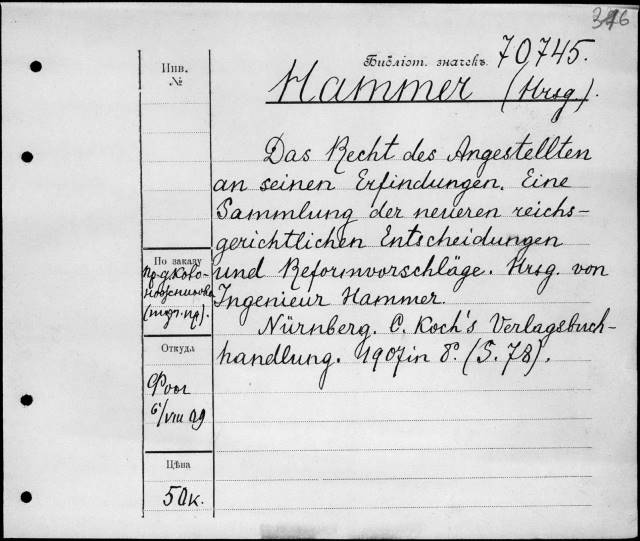 376
Библіот. значекъ. 70745.
Инв.
№
Hammer (Hrsg.).
Das Recht des Angestellten
an seinen Erfindungen. Eine
Sammlung der neueren reichs-
gerichtlichen Entscheidungen
und Reformvorschläge. Hrsg. von
Ingenieur Hammer.
Nürnberg. C. Koch's Verlagsbuch-
handlung. 1907 in 8º. (S. 78).
По заказу
Откуда
6/VIII 09
Цѣна
50к.